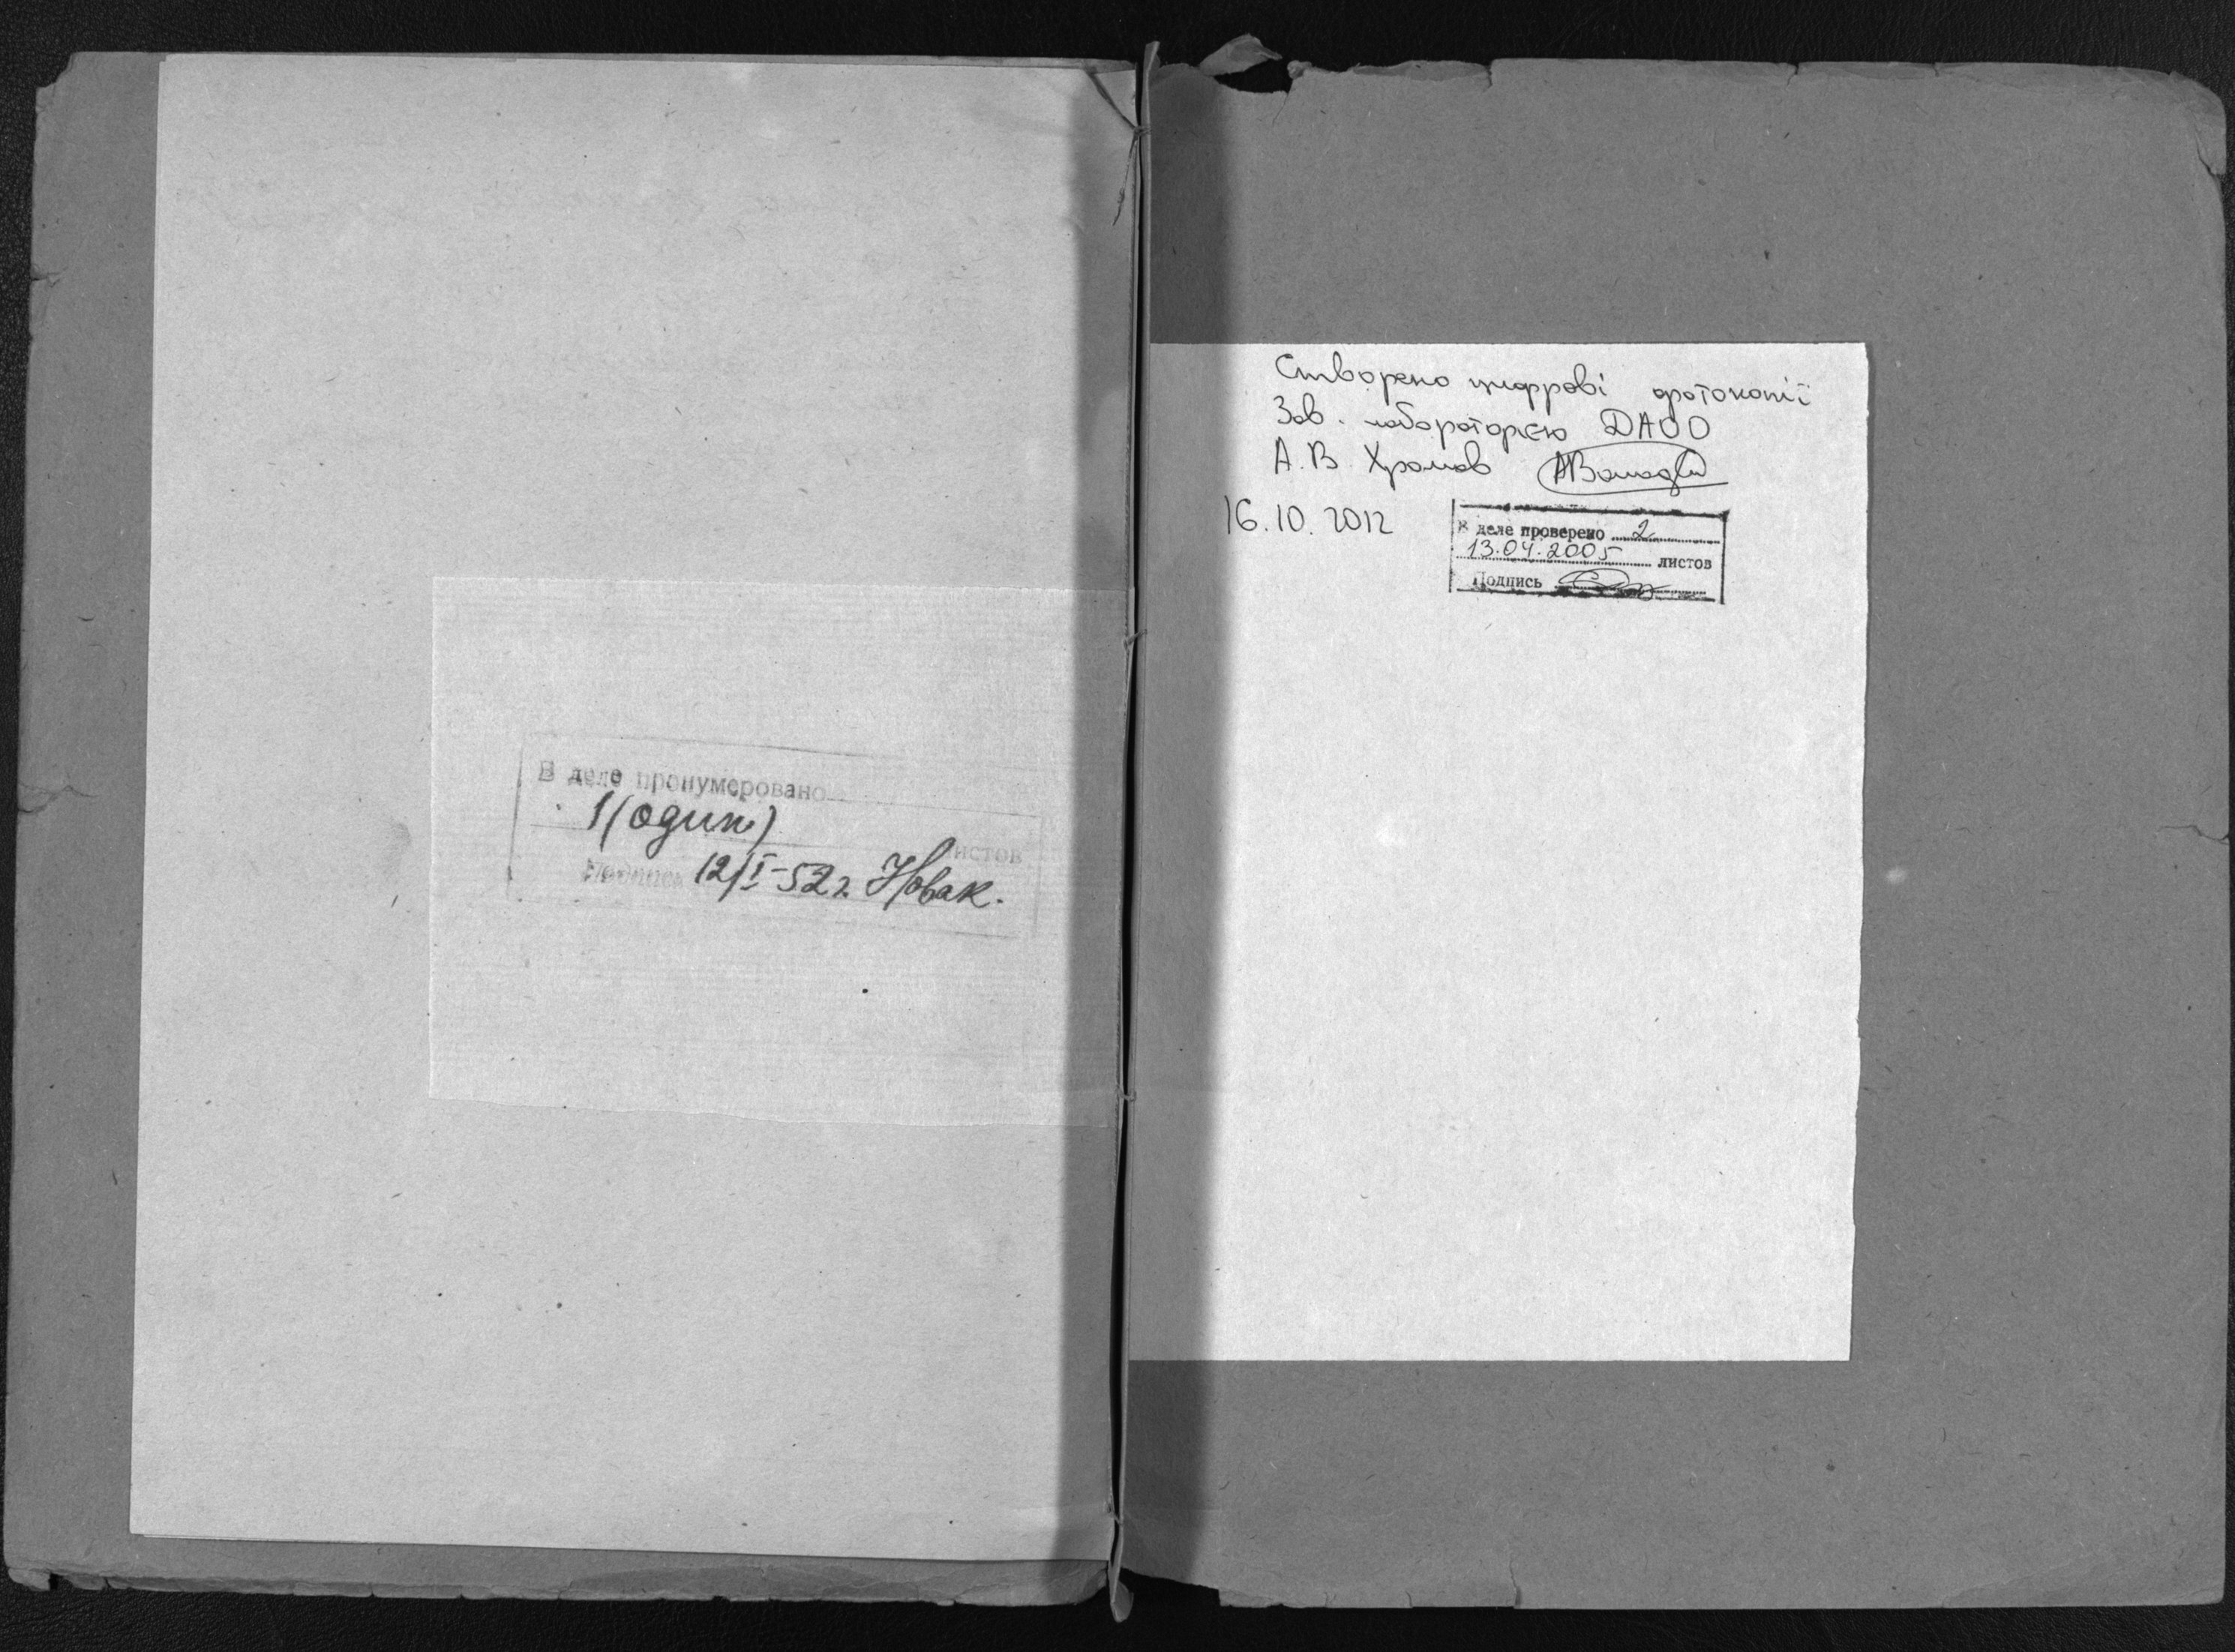 В деле пронумеровано
1 (один)
листов
Подпись 12/I-52 г. Новак.
Створено цифрові фотокопії
Зав. лабораторією ДАОО
А.В. Храмов
16.10.2012
В деле проверено 2
13.04.2005 листов
Подпись